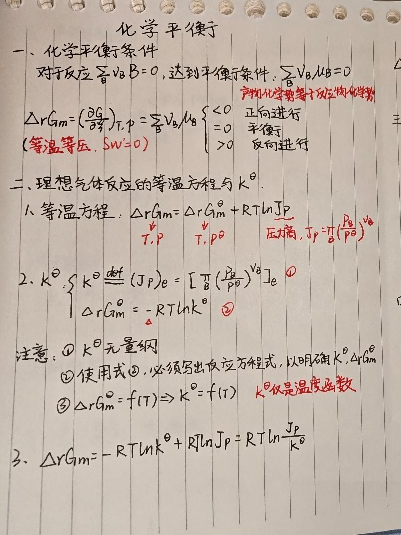 化学平衡
一、化学平衡条件
对于反应 ∑_B ν_B B=0, 达到平衡条件: ∑_B ν_B μ_B=0
产物化学势等于反应物化学势
ΔrGm=(∂G/∂ξ)_T,p=∑_B ν_B μ_B { <0 正向进行
=0 平衡
(等温等压, δW'=0) >0 反向进行
二、理想气体反应的等温方程与K^θ.
1、等温方程: ΔrGm=ΔrGm^θ+RTlnJp
T,p T,p^θ 压力商, Jp=π_B(p_B/p^θ)^ν_B
2. K^θ: { K^θ def (Jp)e=[π_B(p_B/p^θ)^ν_B]e ①
ΔrGm^θ=-RTlnK^θ ②
注意: ① K^θ无量纲
② 使用式②, 必须写出反应方程式, 以明确K^θ, ΔrGm^θ
③ ΔrGm^θ=f(T)⇒K^θ=f(T) K^θ仅是温度函数
3、ΔrGm=-RTlnK^θ+RTlnJp=RTln Jp/K^θ